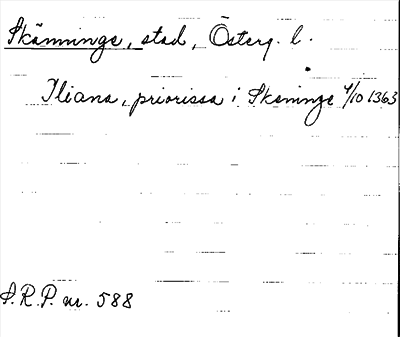 Skänninge, stad, Österg. l.
Iliana, priorissa i Skeninge 4/10 1363
S.R.P. nr. 588